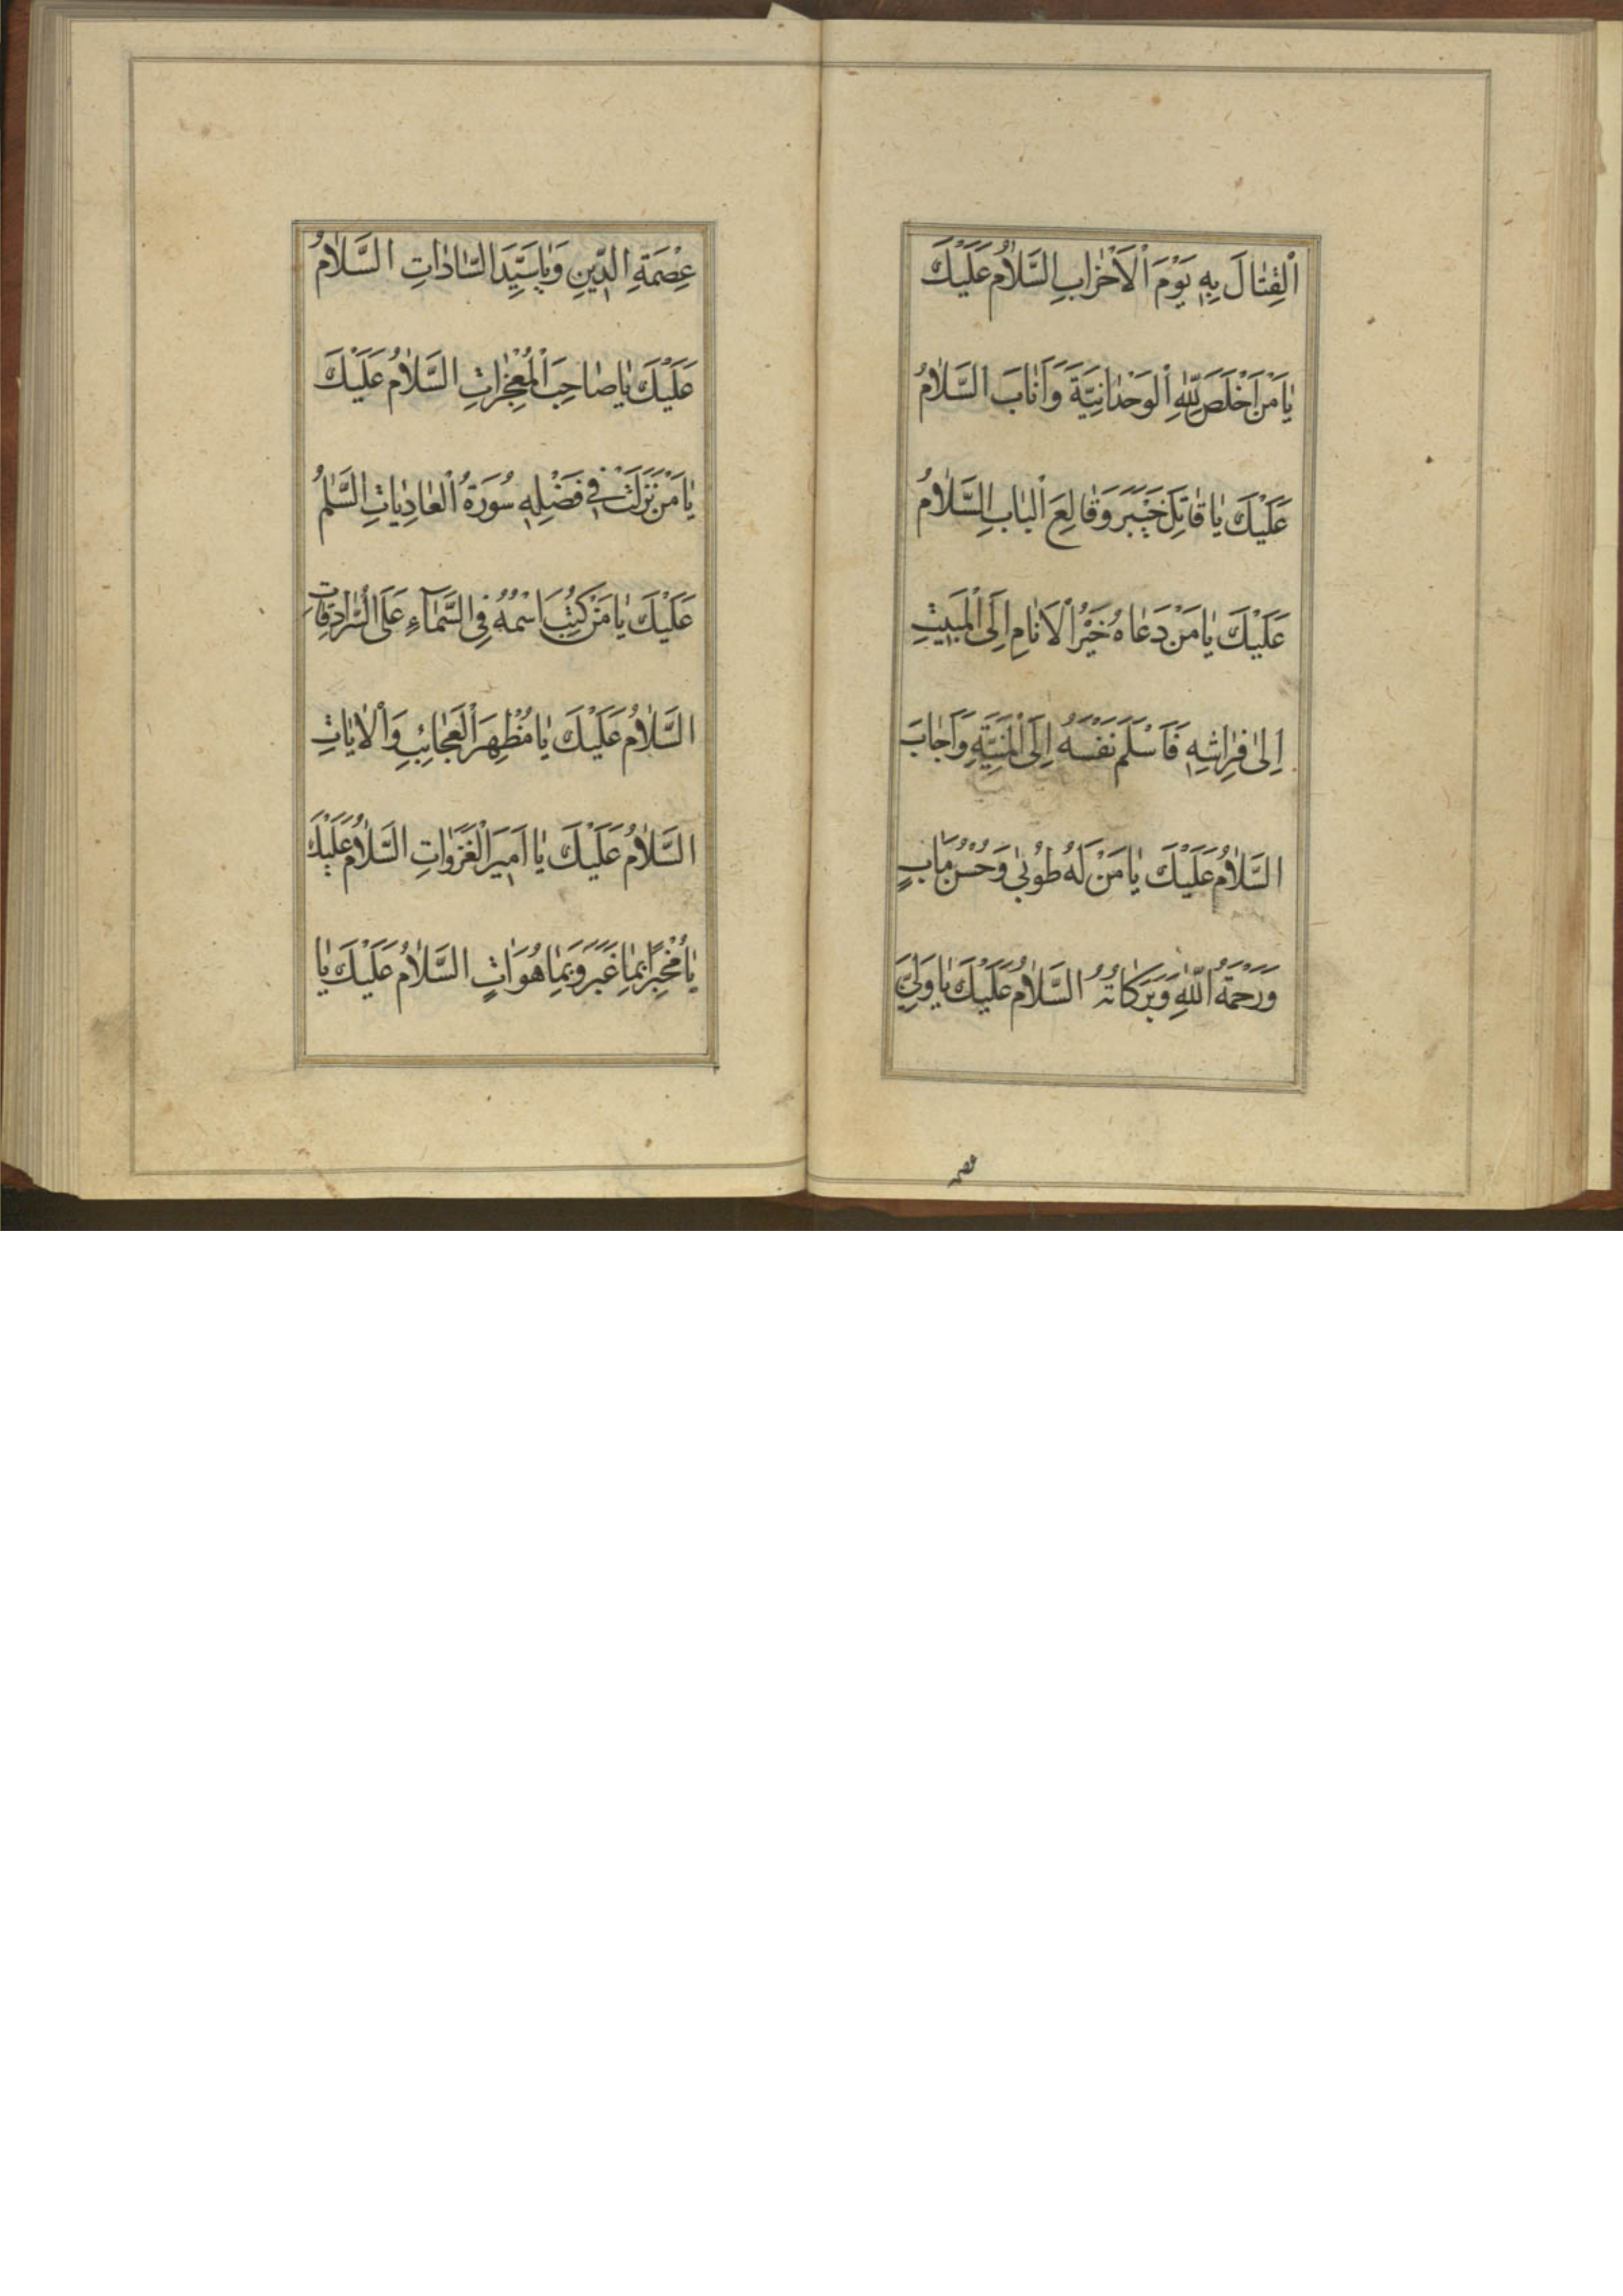 اَلْقِتٰالَ بِهِ يَوْمَ الْاَحْزٰابِ اَلسَّلٰامُ عَلَيْكَ
يٰا مَنْ اَخْلَصَ لِلّٰهِ الْوَحْدٰانِيَّةَ وَاَنٰابَ اَلسَّلٰامُ
عَلَيْكَ يٰا قٰاتِلَ خَيْبَرَ وَقٰالِعَ الْبٰابِ اَلسَّلٰامُ
عَلَيْكَ يٰا مَنْ دَعٰاهُ خَيْرُ الْاَنٰامِ اِلَى الْمَبيتِ
اِلىٰ فِرٰاشِهِ فَاَسْلَمَ نَفْسَهُ اِلَى الْمَنِيَّةِ وَاَجٰابَ
السَّلٰامُ عَلَيْكَ يٰا مَنْ لَهُ طُوْبىٰ وَحُسْنُ مَاٰبٍ
وَرَحْمَةُ اللّٰهِ وَبَرَكٰاتُهُ السَّلٰامُ عَلَيْكَ يٰا وَلِيَّ
عصمة
عِصْمَةِ الدّينِ وَيٰا سَيِّدَ السّٰادٰاتِ السَّلٰامُ
عَلَيْكَ يٰا صٰاحِبَ الْمُعْجِزٰاتِ السَّلٰامُ عَلَيْكَ
يٰا مَنْ نَزَلَتْ فى فَضْلِهِ سُورَةُ الْعٰادِيٰاتِ السَّلٰمُ
عَلَيْكَ يٰا مَنْ كُتِبَ اسْمُهُ فِى السَّمٰآءِ عَلَى السُّرٰادِقٰاتِ
السَّلٰامُ عَلَيْكَ يٰا مُظْهِرَ الْعَجٰائِبِ وَالْاٰيٰاتِ
السَّلٰامُ عَلَيْكَ يٰا اَميرَ الْغَزَوٰاتِ السَّلٰامُ عَلَيْكَ
يٰا مُخْبِرًا بِمٰا غَبَرَ وَبِمٰا هُوَ اٰتٍ السَّلٰامُ عَلَيْكَ يٰا